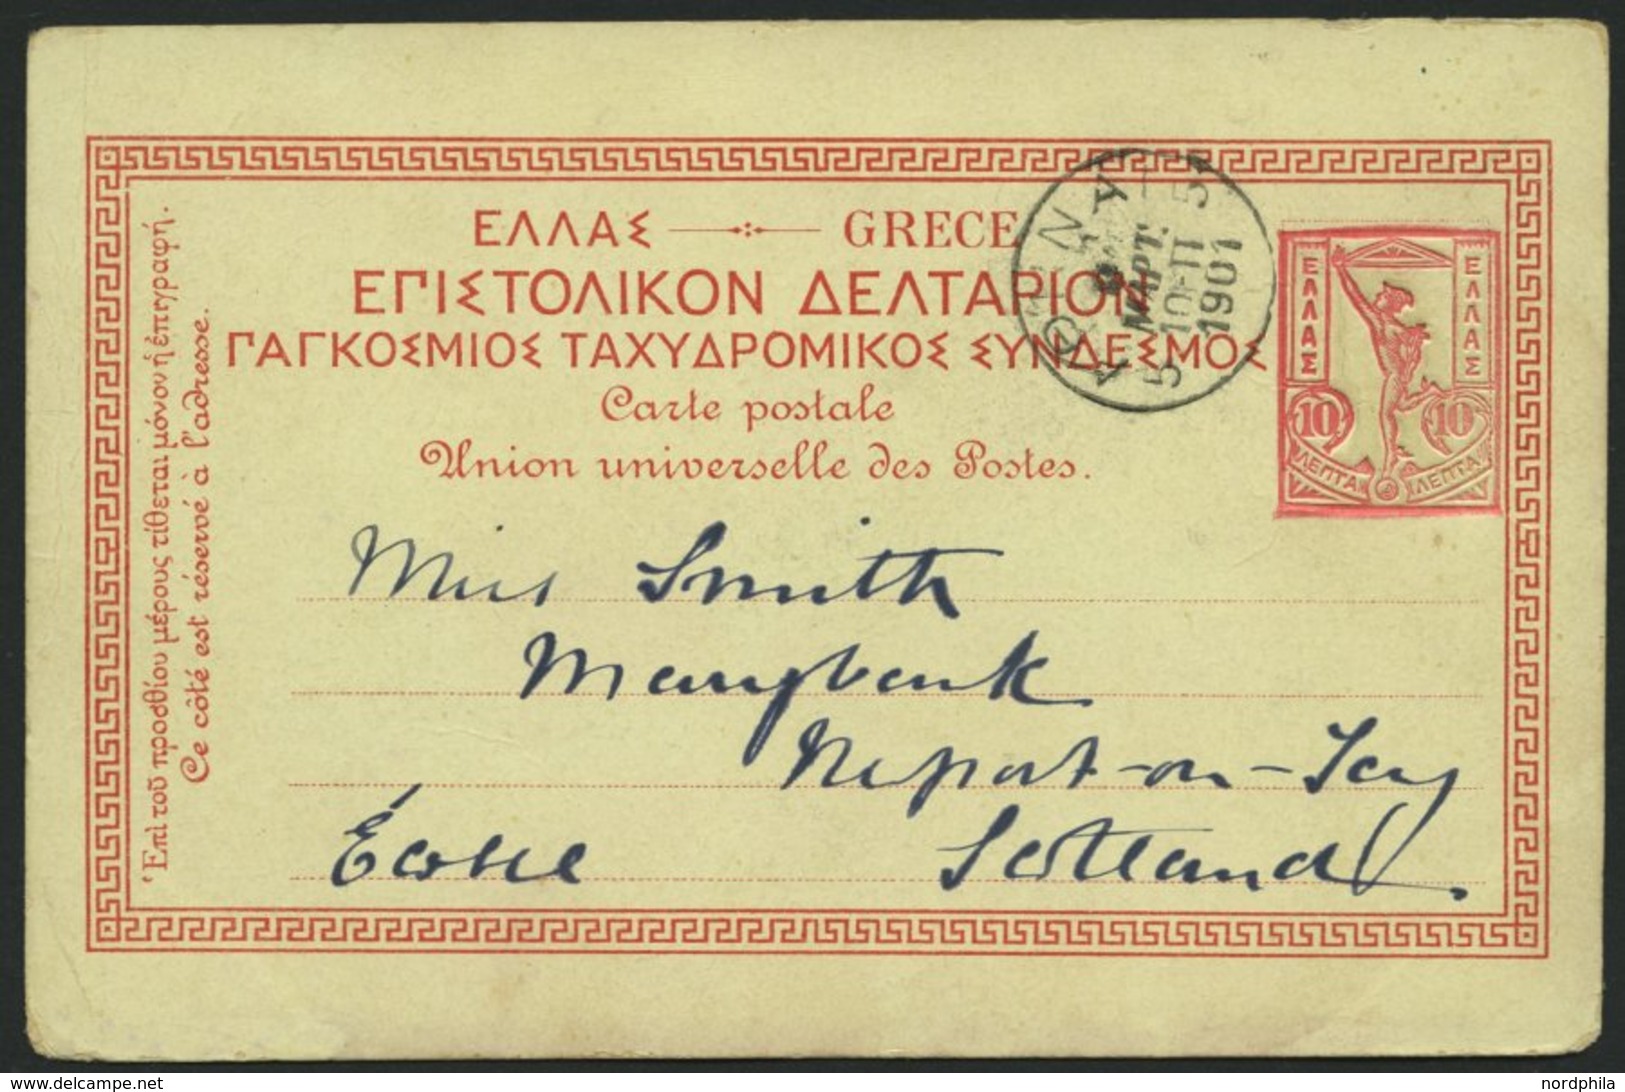 ΕΛΛΑΣ GRECE
ΕΠΙΣΤΟΛΙΚΟΝ ΔΕΛΤΑΡΙΟΝ
ΠΑΓΚΟΣΜΙΟΣ ΤΑΧΥΔΡΟΜΙΚΟΣ ΣΥΝΔΕΣΜΟΣ
Carte postale
Union universelle des Postes.
Ἐπὶ τοῦ προσθίου μέρους τίθεται μόνον ἡ ἐπιγραφή.
Ce côté est réservé à l'adresse.
ΜΑΡΤ.
10 ΠΙ
1901
5 5
ΕΛΛΑΣ ΕΛΛΑΣ
10 10
ΛΕΠΤΑ ΛΕΠΤΑ
Miss Smith
Marybank
Newport-on-Tay
Écosse Scotland
nordphila